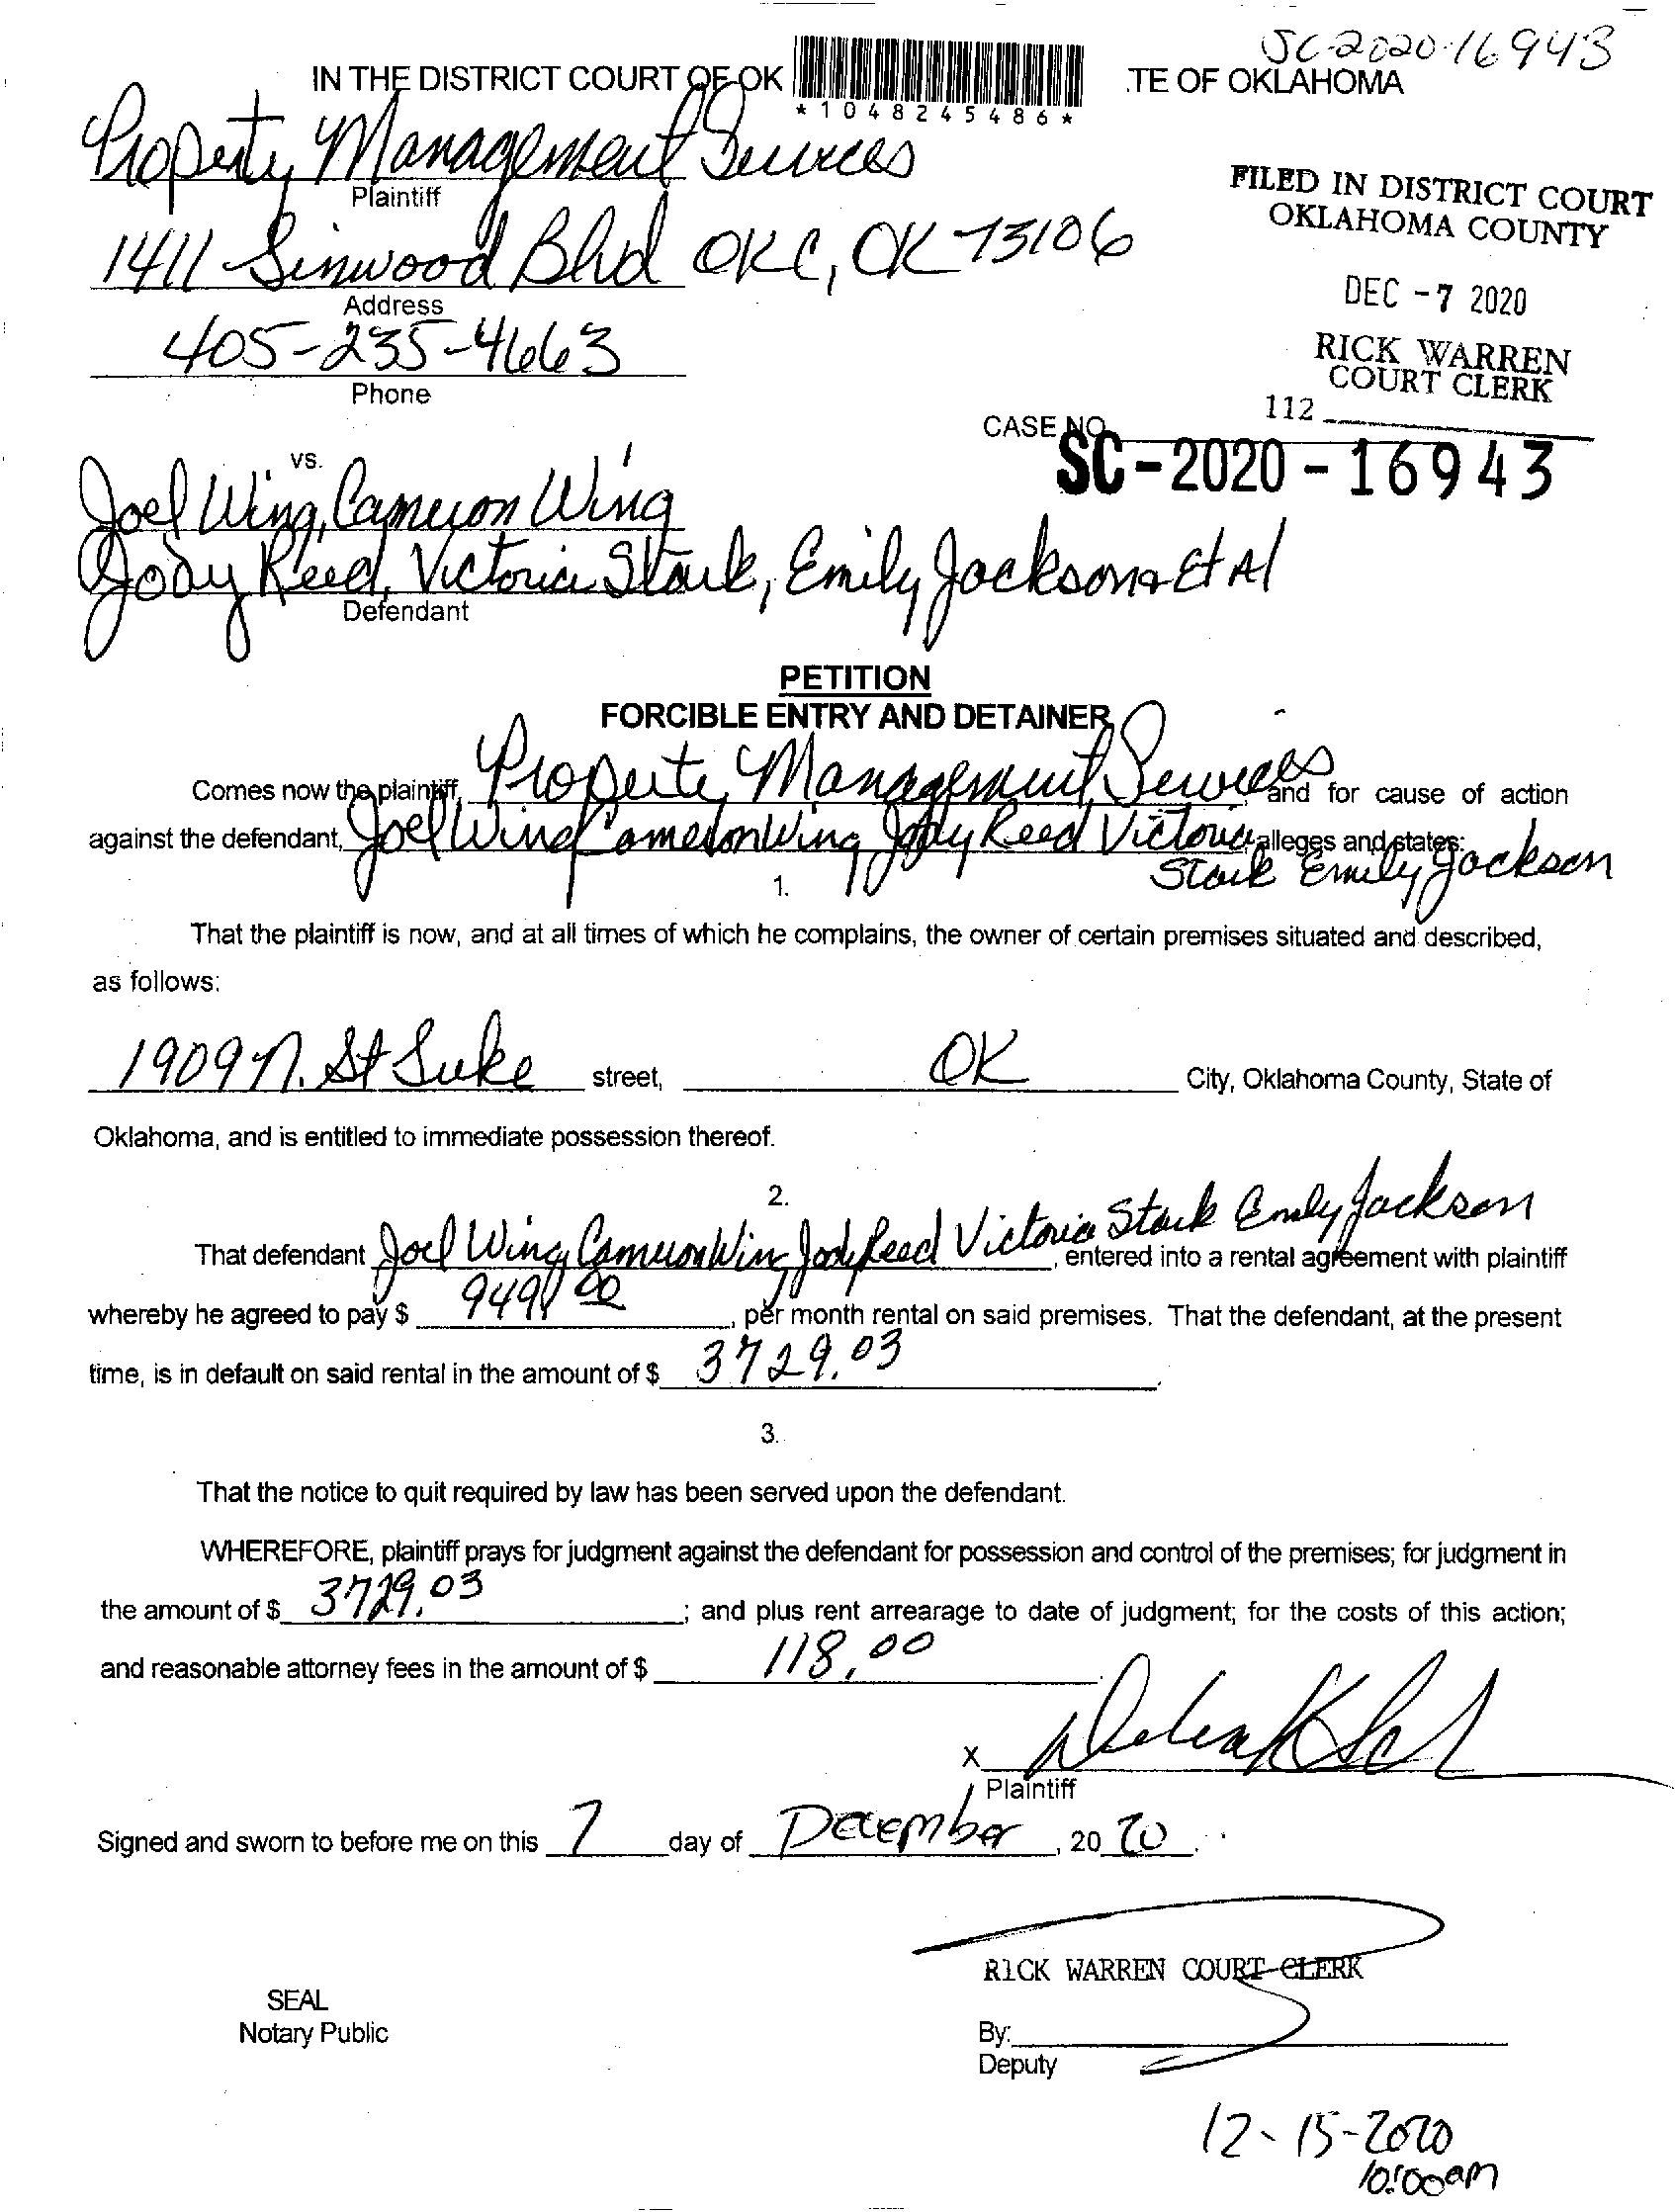 SC-2020-16943
IN THE DISTRICT COURT OF OK TE OF OKLAHOMA
*1048245486*
Property Management Services
Plaintiff
FILED IN DISTRICT COURT
OKLAHOMA COUNTY
1411 Linwood Blvd OKC, OK 73106
Address
DEC -7 2020
405-235-4663
Phone
RICK WARREN
COURT CLERK
112
CASE NO.
SC-2020-16943
vs.
Joel Wing, Cameron Wing
Jody Reed, Victoria Stark, Emily Jackson Et Al
Defendant
PETITION
FORCIBLE ENTRY AND DETAINER
Comes now the plaintiff, Property Management Services, and for cause of action
against the defendant, Joel Wing Cameron Wing Jody Reed Victoria alleges and states:
Stark Emily Jackson
1.
That the plaintiff is now, and at all times of which he complains, the owner of certain premises situated and described,
as follows:
1909 N. St Luke street, OK City, Oklahoma County, State of
Oklahoma, and is entitled to immediate possession thereof.
2.
That defendant Joel Wing Cameron Wing Jody Reed Victoria Stark Emily Jackson, entered into a rental agreement with plaintiff
whereby he agreed to pay $ 949 00, per month rental on said premises. That the defendant, at the present
time, is in default on said rental in the amount of $ 3729.03.
3.
That the notice to quit required by law has been served upon the defendant.
WHEREFORE, plaintiff prays for judgment against the defendant for possession and control of the premises; for judgment in
the amount of $ 3729.03; and plus rent arrearage to date of judgment; for the costs of this action;
and reasonable attorney fees in the amount of $ 118.00.
X
Plaintiff
Signed and sworn to before me on this 7 day of December, 20 20.
RICK WARREN COURT CLERK
SEAL
Notary Public
By:
Deputy
12-15-2020
10:00am